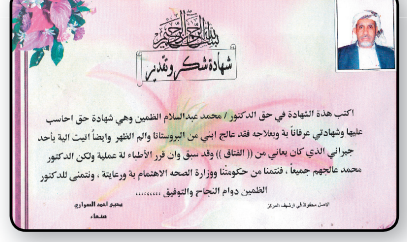 بسم الله الرحمن الرحيم
شهادة شكر وتقدير
اكتب هذة الشهادة في حق الدكتور / محمد عبدالسلام الظمين وهي شهادة حق احاسب
عليها وشهادتي عرفاناً بة وبعلاجه فقد عالج ابني من البروستاتا والم الظهر وايضاً اتيت الية بأحد
جيراني الذي كان يعاني من (( الفتاق )) وقد سبق وان قرر الأطباء لة عملية ولكن الدكتور
محمد عالجهم جميعاً ، فنتمنا من حكومتنا ووزارة الصحه الاهتمام بة ورعايتة ، ونتمنى للدكتور
الظمين دوام النجاح والتوفيق ،،،،،،،،،،،
الاصل محفوظة في ارشيف المركز
احمد
صنعاء